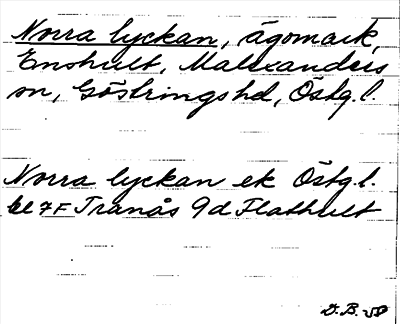 Norra lyckan, ägomark,
Enshult, Malexanders
sn, Göstringshd, Östg.l.
Norra lyckan ek Östg.l.
bl 7F Tranås 9d Flathult
G.B.